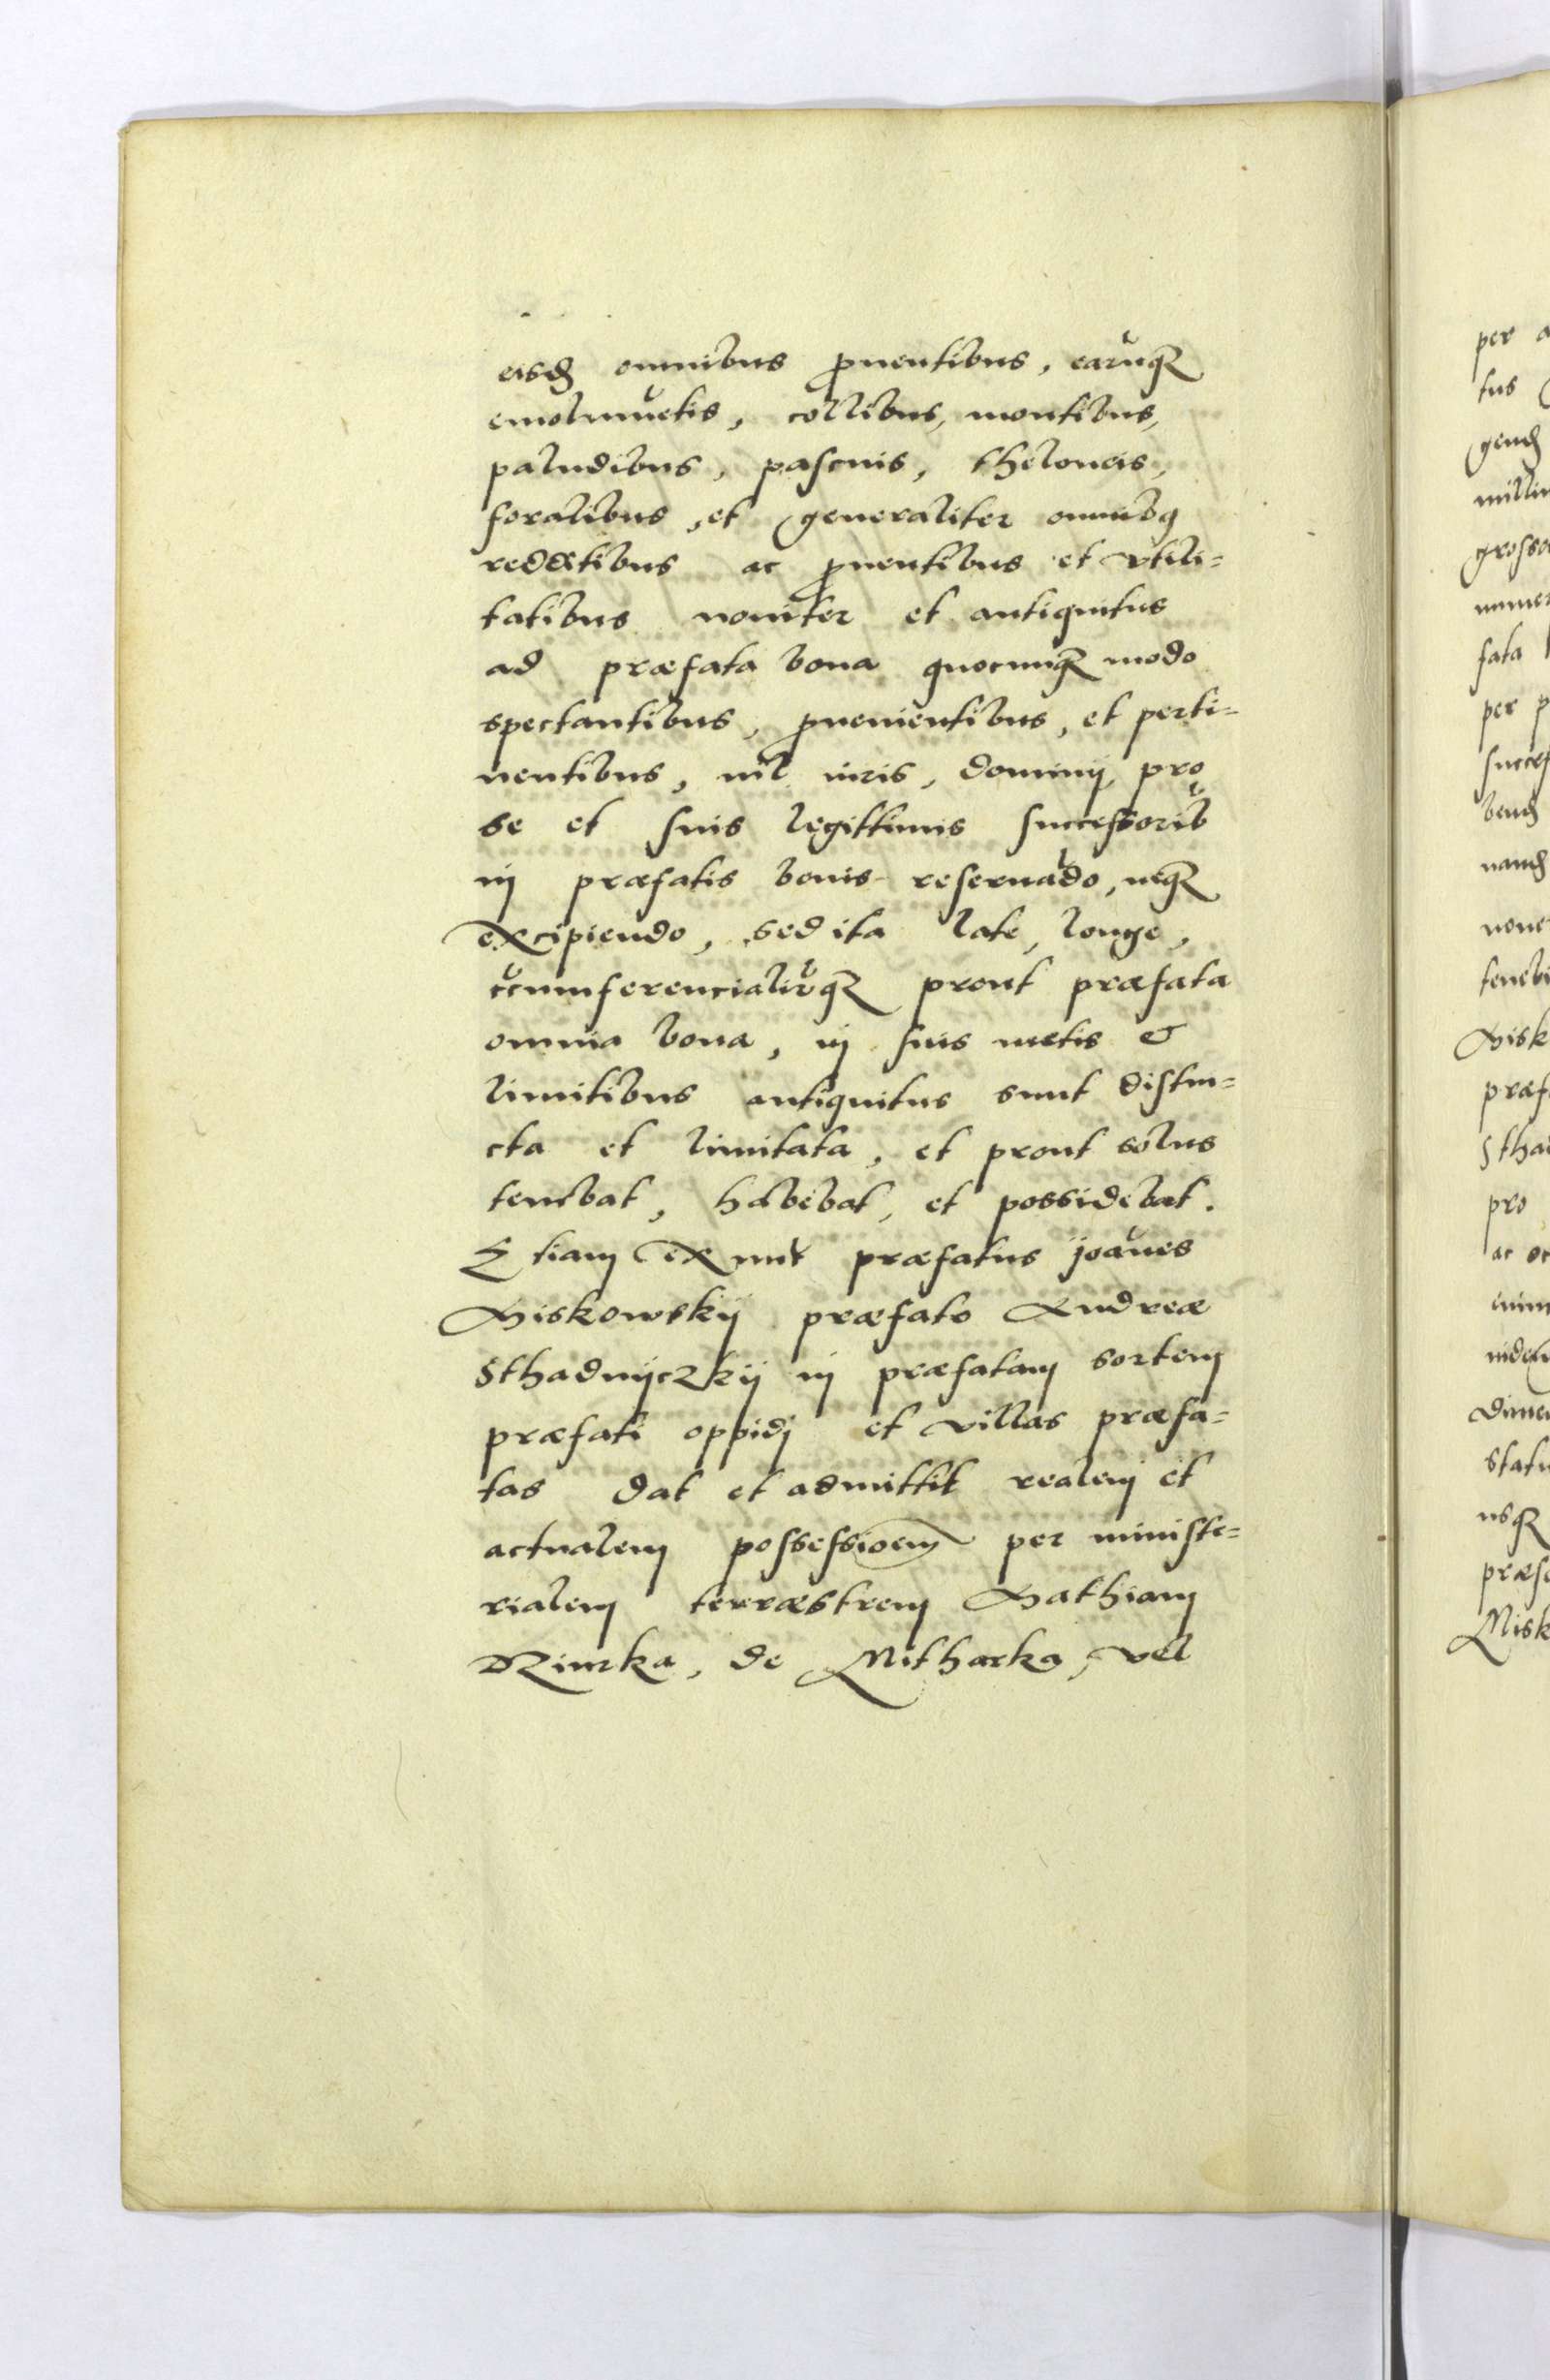 eisdē omnibus ꝓuentibus, earūq꜔
emolumētis, collibus, montibus,
paludibus, pascuis, theloneis,
foralibus, et generaliter omnibꝫ
redditibus ac ꝓuentibus et vtili=
tatibus nouiter et antiquitus
ad præfata bona quocunq꜔ modo
spectantibus, ꝓuenientibus, et perti=
nentibus, nil iuris, dominij, pro
se et suis legittimis successorib
in præfatis bonis reseruādo, neq꜔
excipiendo, sed ita late, longe,
circumferencialiterq꜔ prout præfata
omnia bona, in suis metis &
limitibus antiquitus sunt distin=
cta et limitata, et prout solus
tenebat, habebat, et possidebat.
Etiam ex nūc præfatus joānes
Miskowskij præfato Andreæ
Sthadnijczkij in præfatam sortem
præfati oppidj et villas præfa=
tas dat et admittit realem et
actualem possessioem per ministe=
rialem terræstrem Mathiam
Rimka, de Mitharka, vel
per
tus
gend
millin
grosso
numer
fata
per p
succes
bend
nand
tenebi
Misk
præf
Sthad
pro
ac
dimen
statu
usq꜔
præf
Misk